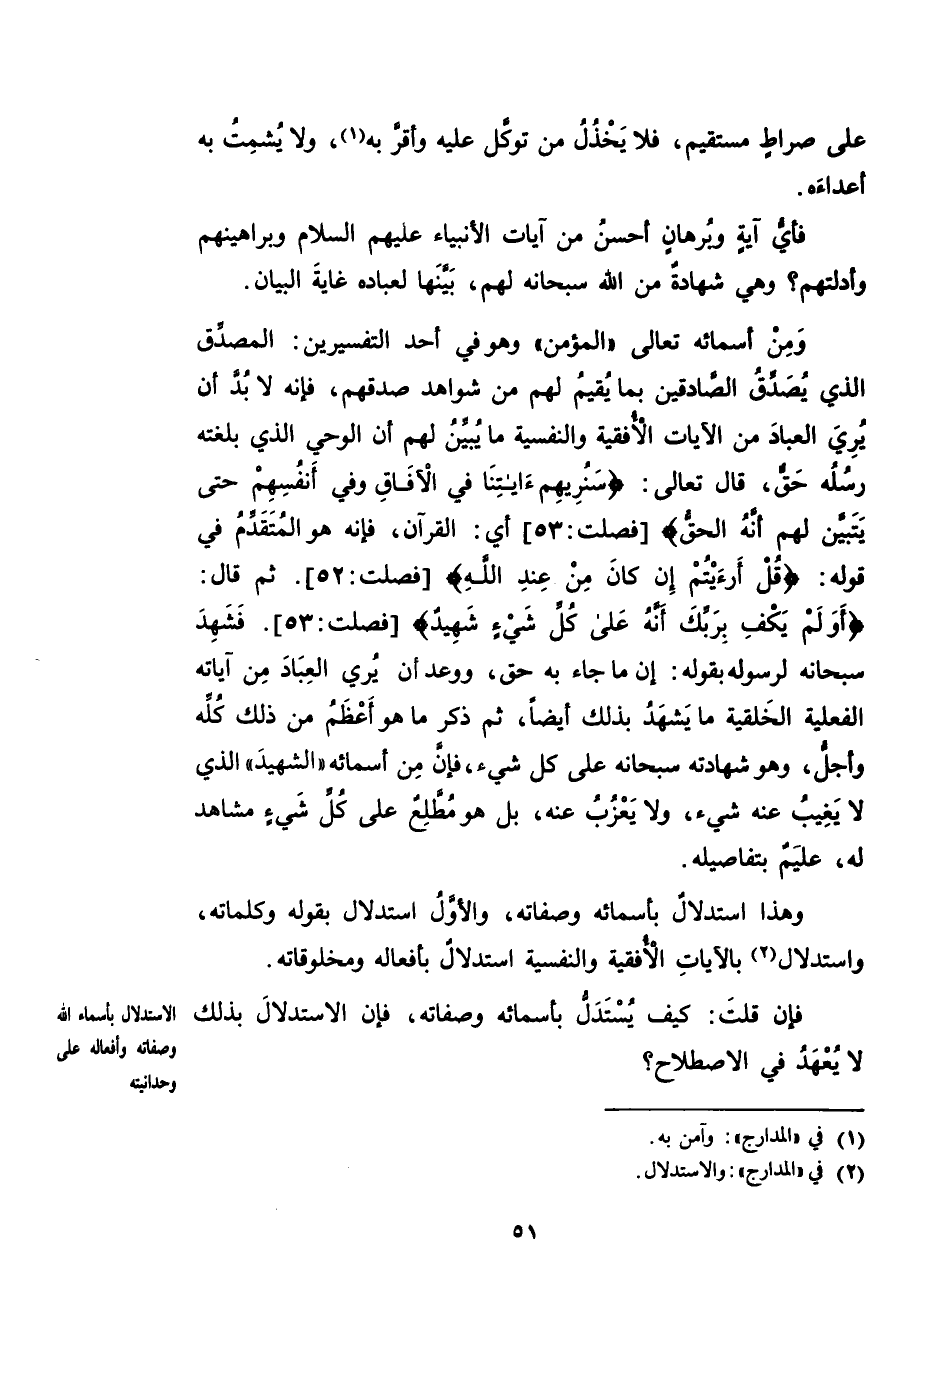 على صراطٍ مستقيم، فلا يَخْذُلُ من توكَّل عليه وأقرَّ به(١)، ولا يُشمِتُ به
أعداءَه.
فأيُّ آيةٍ وبُرهانٍ أحسنُ من آيات الأنبياء عليهم السلام وبراهينهم
وأدلتهم؟ وهي شهادةٌ من الله سبحانه لهم، بَيَّنَها لعباده غايةَ البيان.
وَمِنْ أسمائه تعالى «المؤمن» وهو في أحد التفسيرين: المصدِّق
الذي يُصَدِّقُ الصَّادقين بما يُقيمُ لهم من شواهد صدقهم، فإنه لا بُدَّ أن
يُرِيَ العبادَ من الآيات الْأُفقية والنفسية ما يُبيِّنُ لهم أن الوحي الذي بلغته
رسُلُه حَقٌّ، قال تعالى: ﴿سَنُرِيهِم ءَايٰتِنَا في الْآفَاقِ وفي أَنفُسِهِمْ حتى
يَتَبيَّن لهم أنَّهُ الحقُّ﴾ [فصلت:٥٣] أي: القرآن، فإنه هو المُتَقَدِّمُ في
قوله: ﴿قُلْ أَرءَيْتُمْ إن كانَ مِنْ عِندِ اللَّهِ﴾ [فصلت:٥٢]. ثم قال:
﴿أَوَ لَمْ يَكْفِ بِرَبِّكَ أَنَّهُ عَلىٰ كُلِّ شَيْءٍ شَهِيدٌ﴾ [فصلت:٥٣]. فَشَهِدَ
سبحانه لرسوله بقوله: إن ما جاء به حق، ووعد أن يُري العِبَادَ مِن آياته
الفعلية الخَلقية ما يَشهَدُ بذلك أيضاً، ثم ذكر ما هو أَعْظَمُ من ذلك كُلِّه
وأجلُّ، وهو شهادته سبحانه على كل شيء، فإنَّ مِن أسمائه «الشهيدَ» الذي
لا يَغِيبُ عنه شيء، ولا يَعْزُبُ عنه، بل هو مُطَّلِعٌ على كُلِّ شَيءٍ مشاهد
له، عليمٌ بتفاصيله.
وهذا استدلالٌ بأسمائه وصفاته، والأوَّلُ استدلال بقوله وكلماته،
واستدلال(٢) بالآياتِ الْأُفقية والنفسية استدلالٌ بأفعاله ومخلوقاته.
فإن قلتَ: كيف يُسْتَدَلُّ بأسمائه وصفاته، فإن الاستدلالَ بذلك
لا يُعْهَدُ في الاصطلاح؟
الاستدلال بأسماء الله
وصفاته وأفعاله على
وحدانيته
(١) في «المدارج»: وآمن به.
(٢) في «المدارج»: والاستدلال.
٥١